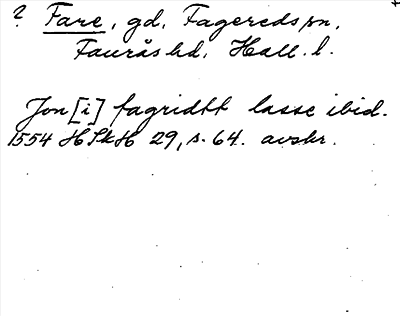 ? Fare, gd, Fagereds sn,
Faurås hd, Hall. l.
Jon [i] fagridtt lasse ibid.
1554 HSkH 29, s. 64. avskr.